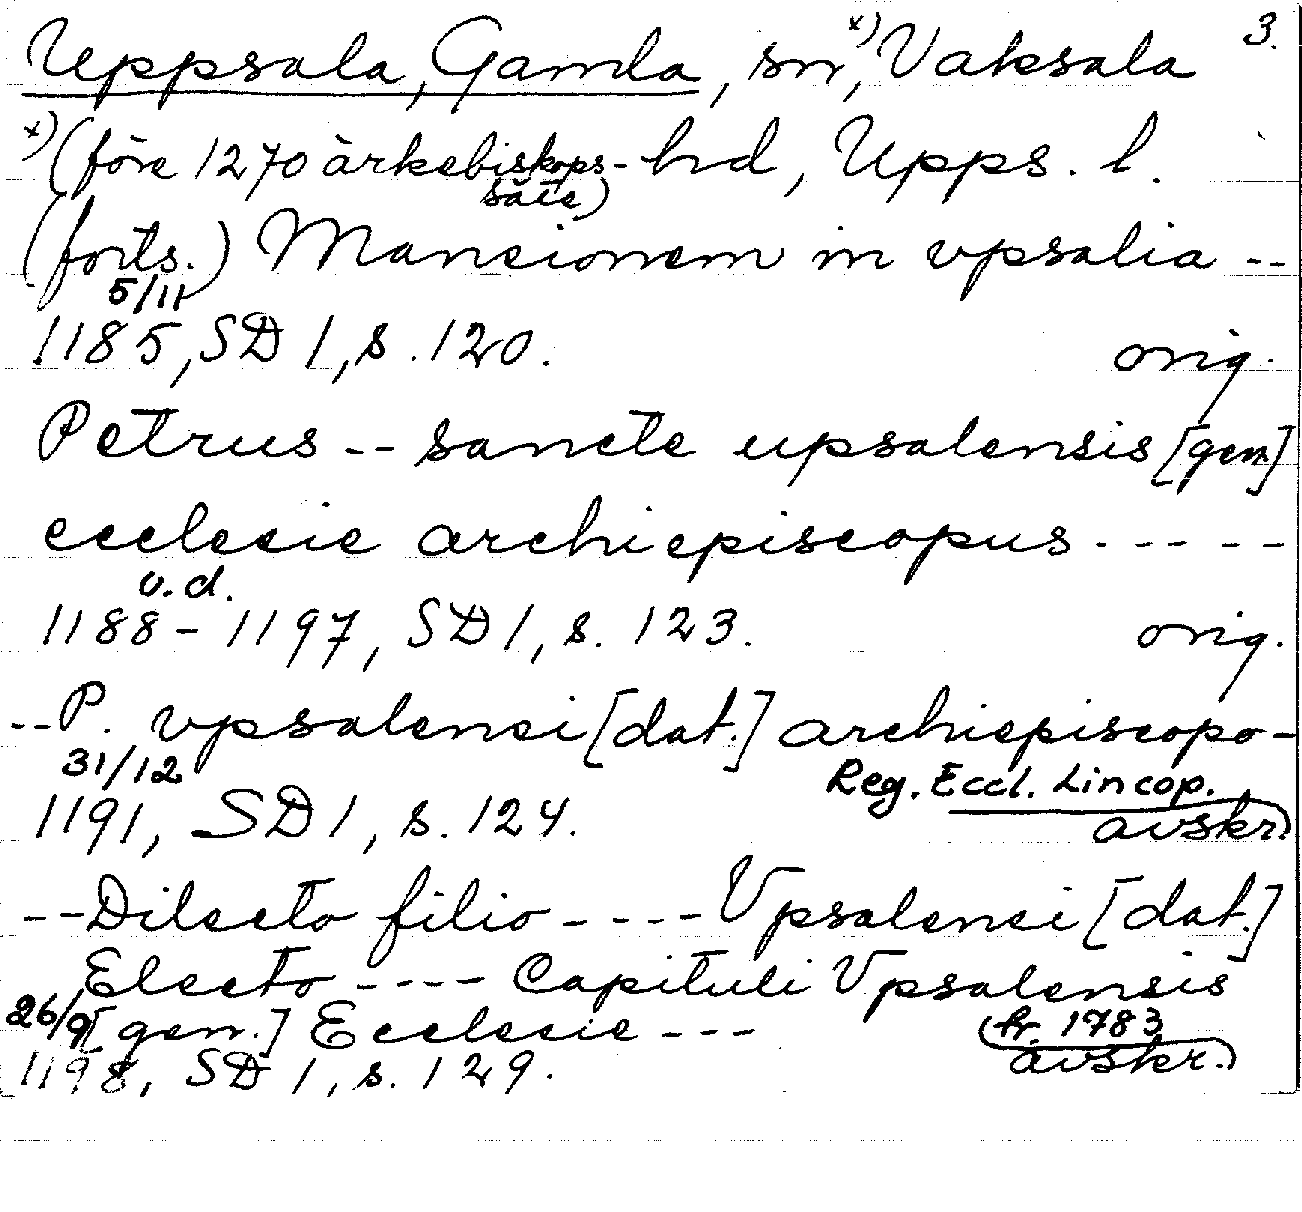 Uppsala, Gamla, sn, x) Vaksala 3.
x) (före 1270 ärkebiskops- hd, Upps. l.
säte)
(forts.) Mancionem in vpsalia --
5/11
1185, SD 1, s. 120. orig.
Petrus -- sancte upsalensis [gen]
ecclesie archiepiscopus - - - - -
o.d.
1188 - 1197, SD 1, s. 123. orig.
-- P. vpsalensi [dat.] archiepiscopo -
31/12 Reg. Eccl. Lincop.
1191, SD 1, s. 124. avskr.)
-- Dilecto filio - - - - Vpsalensi [dat.]
Electo - - - - Capituli Vpsalensis
26/9 [gen.] Ecclesie - - - (fr. 1783
1198, SD 1, s. 129. avskr.)